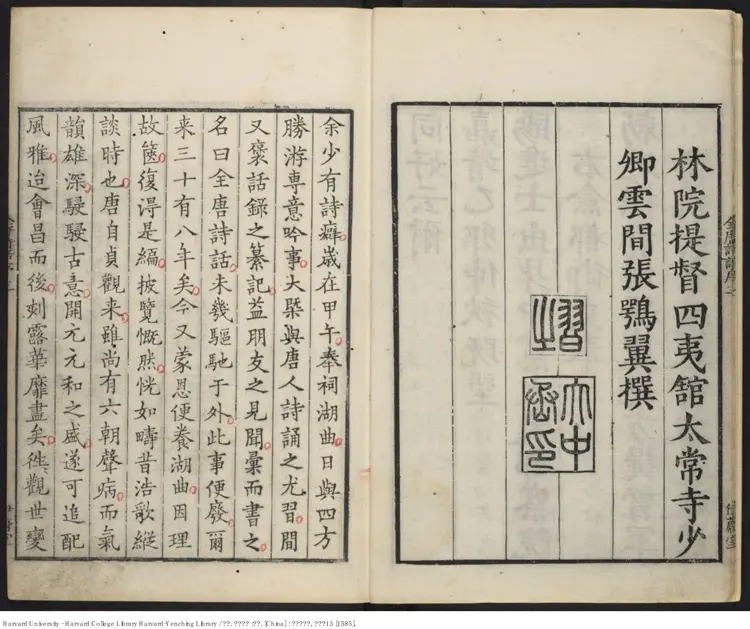 林院提督四夷舘太常寺少
卿雲間張鶚翼撰
余少有詩癖歲在甲午奉祠湖曲日與四方
勝游專意吟事大槩與唐人詩誦之尤習間
又裒話錄之纂記益朋友之見聞彙而書之
名曰全唐詩話未幾驅馳于外此事便廢爾
来三十有八年矣今又蒙恩便養湖曲因理
故篋復淂是編披覽慨然恍如疇昔浩歌縱
談時也唐自貞觀来雖尚有六朝聲病而氣
韻雄深駸駸古意開元元和之盛遂可追配
風雅迨會昌而後刻露華靡盡矣徃徃觀世變
Harvard University - Harvard College Library Harvard-Yenching Library / ??. ???? : ??. [China] : ?????, ???13 [1585].